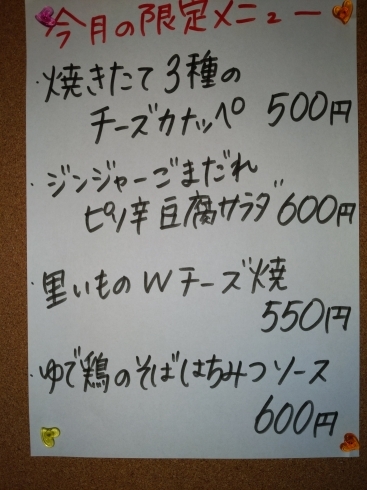 今月の限定メニュー
・焼きたて3種の
チーズカナッペ 500円
・ジンジャーごまだれ
ピリ辛豆腐サラダ 600円
・里いものWチーズ焼
550円
・ゆで鶏のそばはちみつソース
600円